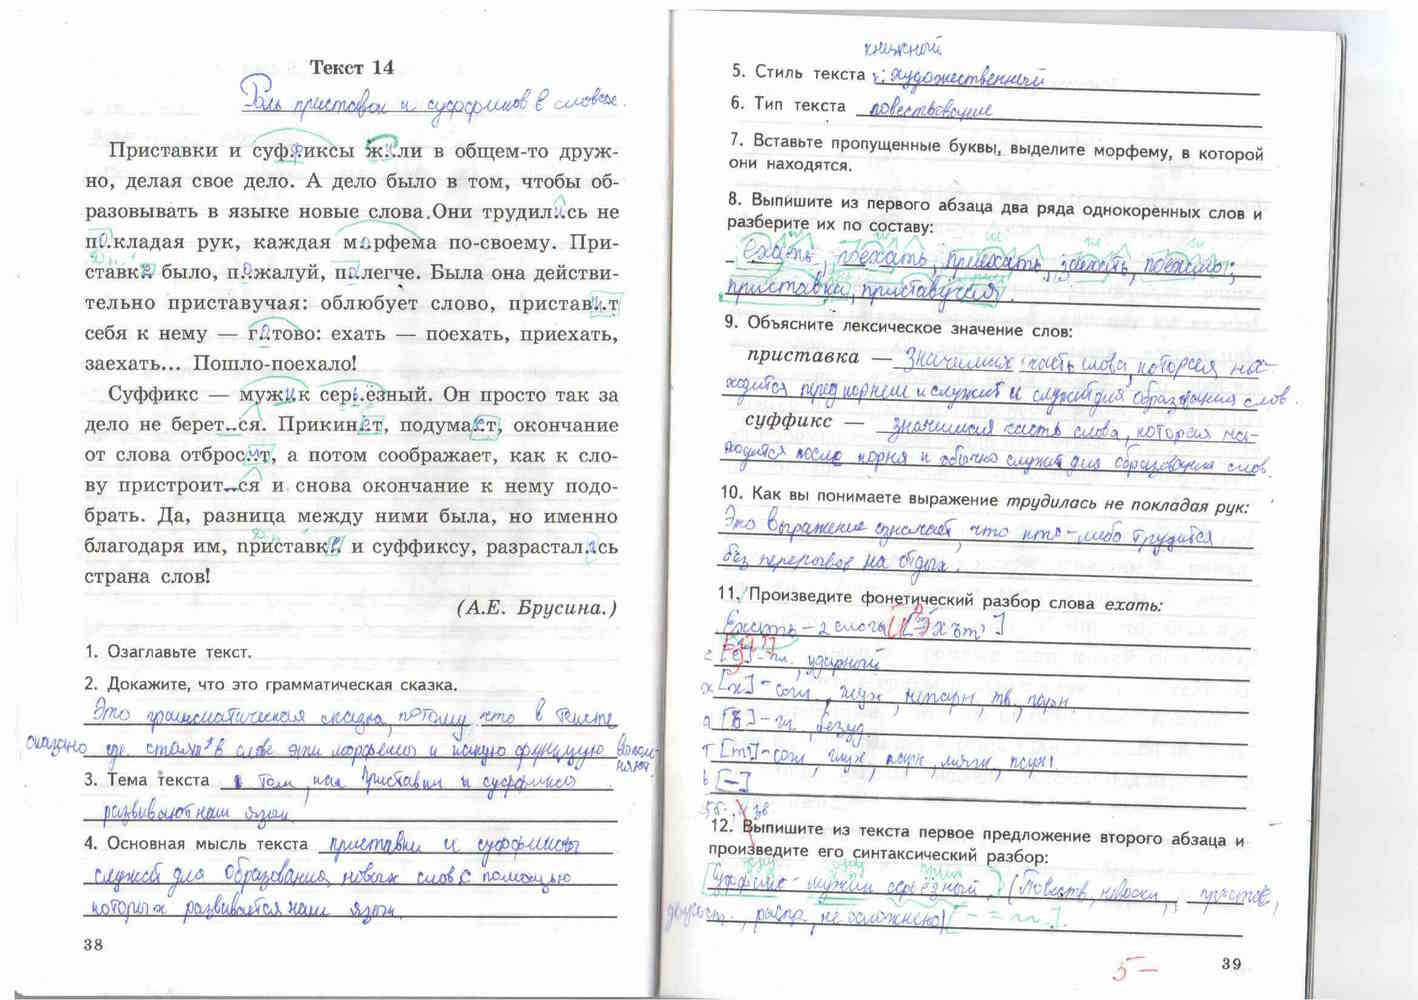 Текст 14
Роль приставок и суффиксов в словах.
Приставки и суффиксы жили в общем-то друж-
но, делая свое дело. А дело было в том, чтобы об-
разовывать в языке новые слова.Они трудились не
покладая рук, каждая морфема по-своему. При-
ставке было, пожалуй, полегче. Была она действи-
тельно приставучая: облюбует слово, приставит
себя к нему — готово: ехать — поехать, приехать,
заехать... Пошло-поехало!
Суффикс — мужик серьёзный. Он просто так за
дело не берет..ся. Прикинет, подумает, окончание
от слова отбросит, а потом соображает, как к сло-
ву пристроит..ся и снова окончание к нему подо-
брать. Да, разница между ними была, но именно
благодаря им, приставке и суффиксу, разрасталась
страна слов!
(А.Е. Брусина.)
1. Озаглавьте текст.
2. Докажите, что это грамматическая сказка.
Это грамматическая сказка, потому что в тексте
сказано где стоят в слове эти морфемы и какую функцию выпол-
няют.
3. Тема текста о том, как приставки и суффиксы
развивают наш язык
4. Основная мысль текста приставки и суффиксы
служат для образования новых слов с помощью
которых развивается наш язык.
38
книжный
5. Стиль текста художественный
6. Тип текста повествование
7. Вставьте пропущенные буквы, выделите морфему, в которой
они находятся.
8. Выпишите из первого абзаца два ряда однокоренных слов и
разберите их по составу:
ехать, поехать, приехать, заехать, поехало;
приставки, приставучая.
9. Объясните лексическое значение слов:
приставка — значимая часть слова, которая на-
ходится перед корнем и служит и служит для образования слов.
суффикс — значимая часть слова, которая на-
ходится после корня и обычно служит для образования слов.
10. Как вы понимаете выражение трудилась не покладая рук:
Это выражение означает, что кто-либо трудится
без перерывов на отдых.
11. Произведите фонетический разбор слова ехать:
Ехать – 2 слога [йэхът']
е [э] – гл., ударный
х [х] – согл., глух, непарн, тв, парн.
а [ъ] – гл, безуд.
т [т'] – согл, глух, парн, мягк, парн.
ь [–]
5б., 4 зв
12. Выпишите из текста первое предложение второго абзаца и
произведите его синтаксический разбор:
Суффикс – мужик серьёзный. (Повеств, невоскл, простое,
двусост., распр, не осложнено) [– =].
5–
39